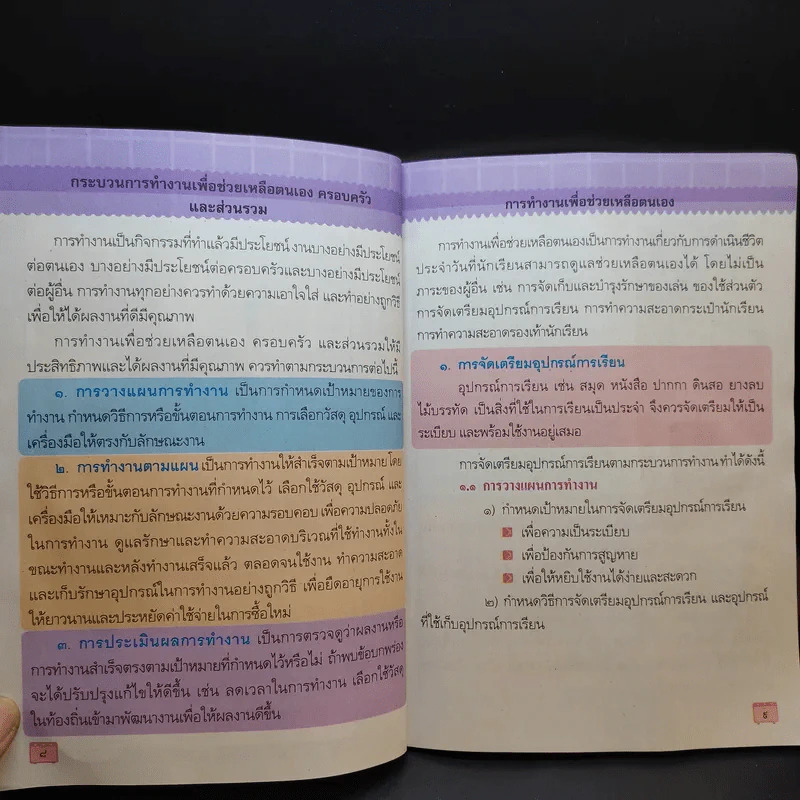 กระบวนการทำงานเพื่อช่วยเหลือตนเอง ครอบครัว
และส่วนรวม
การทำงานเป็นกิจกรรมที่ทำแล้วมีประโยชน์ งานบางอย่างมีประโยชน์
ต่อตนเอง บางอย่างมีประโยชน์ต่อครอบครัวและบางอย่างมีประโยชน์
ต่อผู้อื่น การทำงานทุกอย่างควรทำด้วยความเอาใจใส่ และทำอย่างถูกวิธี
เพื่อให้ได้ผลงานที่ดีมีคุณภาพ
การทำงานเพื่อช่วยเหลือตนเอง ครอบครัว และส่วนรวมให้มี
ประสิทธิภาพและได้ผลงานที่มีคุณภาพ ควรทำตามกระบวนการต่อไปนี้
๑. การวางแผนการทำงาน เป็นการกำหนดเป้าหมายของการ
ทำงาน กำหนดวิธีการหรือขั้นตอนการทำงาน การเลือกวัสดุ อุปกรณ์ และ
เครื่องมือให้ตรงกับลักษณะงาน
๒. การทำงานตามแผน เป็นการทำงานให้สำเร็จตามเป้าหมาย โดย
ใช้วิธีการหรือขั้นตอนการทำงานที่กำหนดไว้ เลือกใช้วัสดุ อุปกรณ์ และ
เครื่องมือให้เหมาะกับลักษณะงานด้วยความรอบคอบ เพื่อความปลอดภัย
ในการทำงาน ดูแลรักษาและทำความสะอาดบริเวณที่ใช้ทำงานทั้งใน
ขณะทำงานและหลังทำงานเสร็จแล้ว ตลอดจนใช้งาน ทำความสะอาด
และเก็บรักษาอุปกรณ์ในการทำงานอย่างถูกวิธี เพื่อยืดอายุการใช้งาน
ให้ยาวนานและประหยัดค่าใช้จ่ายในการซื้อใหม่
๓. การประเมินผลการทำงาน เป็นการตรวจดูว่าผลงานหรือ
การทำงานสำเร็จตรงตามเป้าหมายที่กำหนดไว้หรือไม่ ถ้าพบข้อบกพร่อง
จะได้ปรับปรุงแก้ไขให้ดีขึ้น เช่น ลดเวลาในการทำงาน เลือกใช้วัสดุ
ในท้องถิ่นเข้ามาพัฒนางานเพื่อให้ผลงานดีขึ้น
๘
การทำงานเพื่อช่วยเหลือตนเอง
การทำงานเพื่อช่วยเหลือตนเองเป็นการทำงานเกี่ยวกับการดำเนินชีวิต
ประจำวันที่นักเรียนสามารถดูแลช่วยเหลือตนเองได้ โดยไม่เป็น
ภาระของผู้อื่น เช่น การจัดเก็บและบำรุงรักษาของเล่น ของใช้ส่วนตัว
การจัดเตรียมอุปกรณ์การเรียน การทำความสะอาดกระเป๋านักเรียน
การทำความสะอาดรองเท้านักเรียน
๑. การจัดเตรียมอุปกรณ์การเรียน
อุปกรณ์การเรียน เช่น สมุด หนังสือ ปากกา ดินสอ ยางลบ
ไม้บรรทัด เป็นสิ่งที่ใช้ในการเรียนเป็นประจำ จึงควรจัดเตรียมให้เป็น
ระเบียบ และพร้อมใช้งานอยู่เสมอ
การจัดเตรียมอุปกรณ์การเรียนตามกระบวนการทำงาน ทำได้ดังนี้
๑.๑ การวางแผนการทำงาน
๑) กำหนดเป้าหมายในการจัดเตรียมอุปกรณ์การเรียน
เพื่อความเป็นระเบียบ
เพื่อป้องกันการสูญหาย
เพื่อให้หยิบใช้งานได้ง่ายและสะดวก
๒) กำหนดวิธีการจัดเตรียมอุปกรณ์การเรียน และอุปกรณ์
ที่ใช้เก็บอุปกรณ์การเรียน